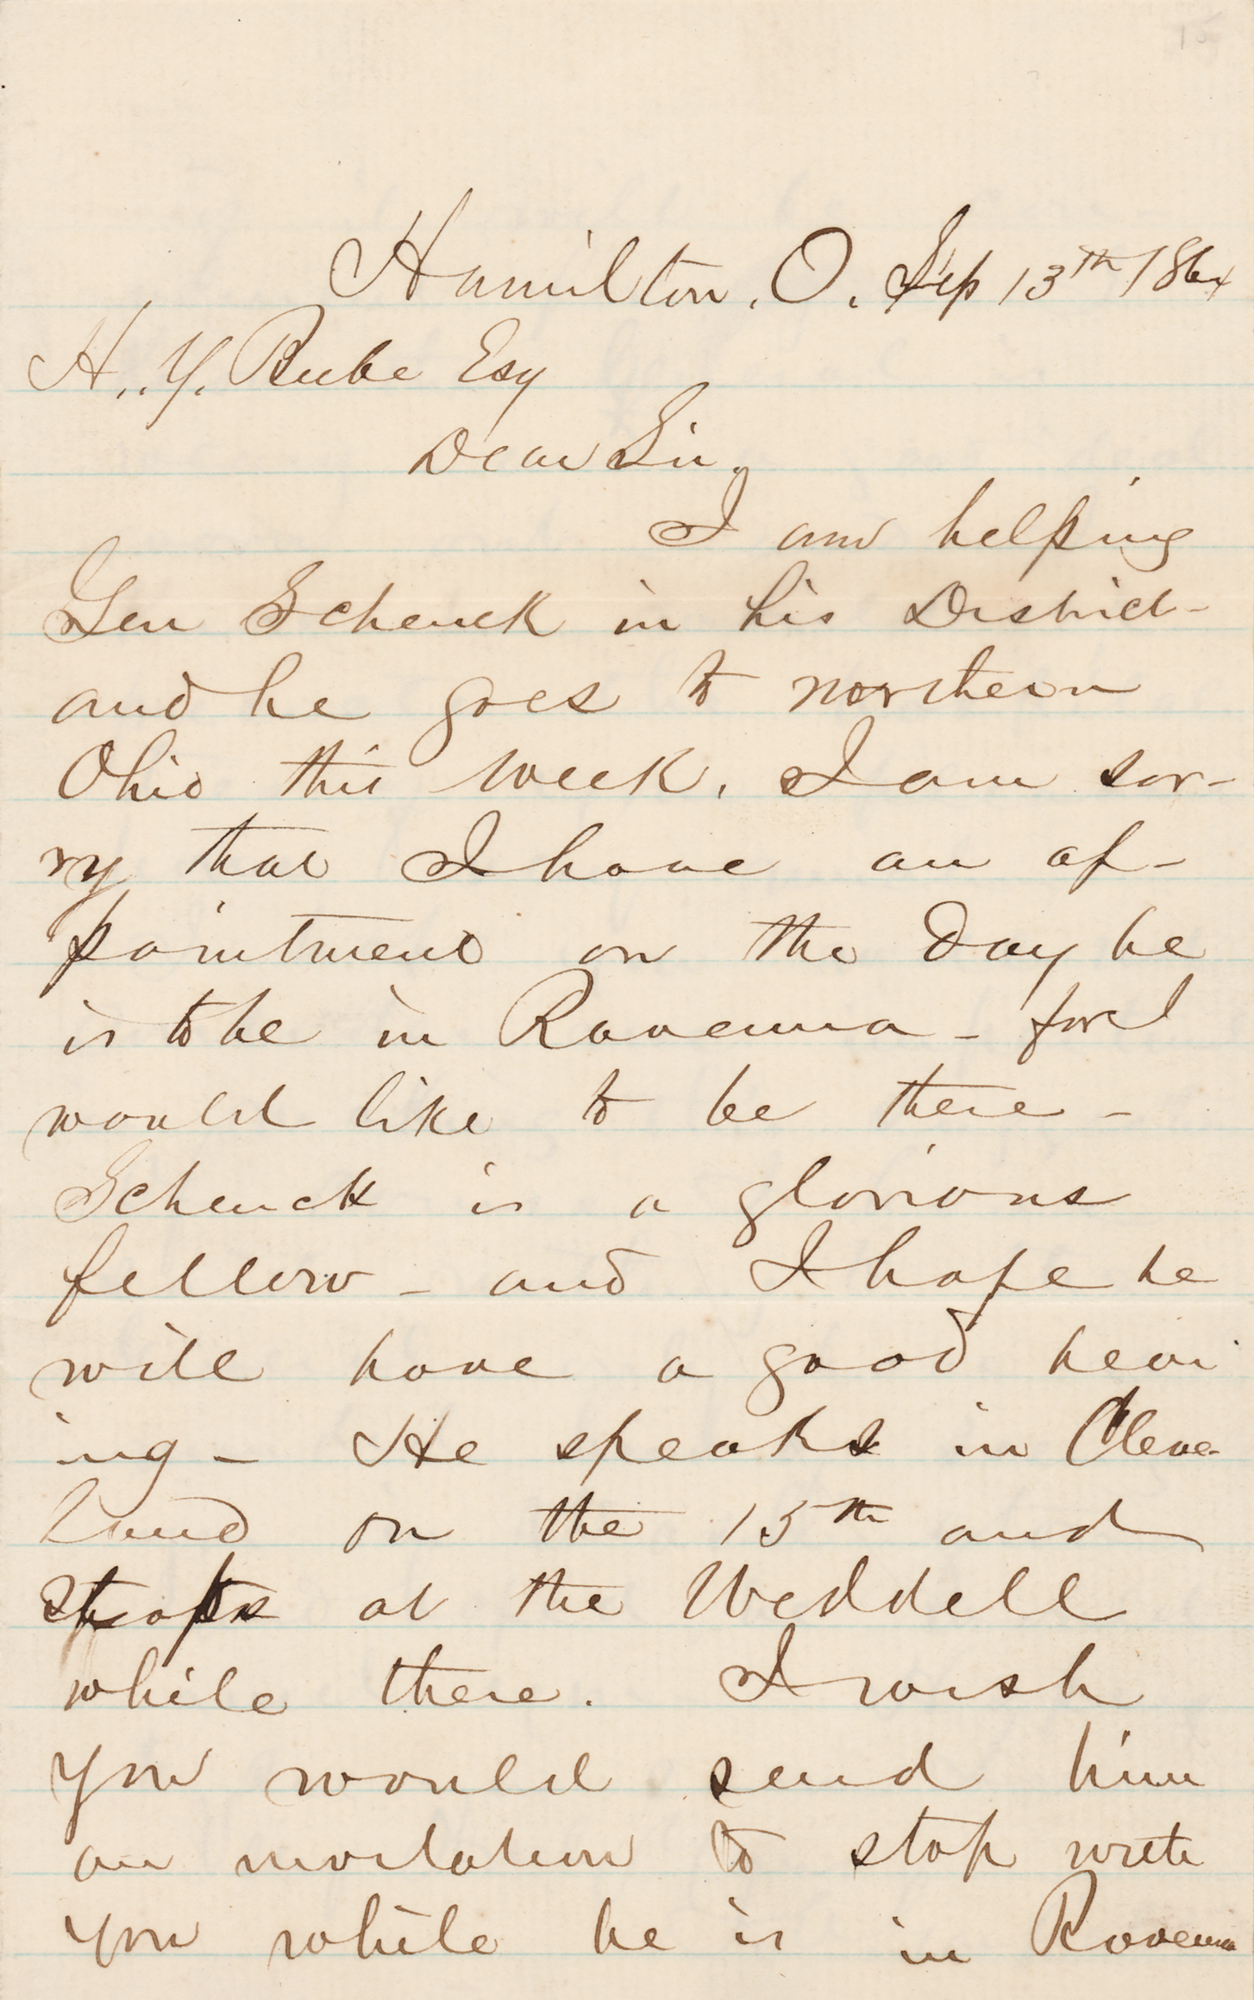 Hamilton, O. Sep 13th 1864
H. Y. Beebe Esq
Dear Sir.
I am helping
Gen Schenck in his District -
and he goes to northern
Ohio this week. I am sor-
ry that I have an ap-
pointment on the day he
is to be in Ravenna - for I
would like to be there -
Schenck is a glorious
fellow - and I hope he
will have a good hear
ing - He speaks in Cleve-
land on the 15th and
stops at the Weddell
while there. I wish
you would send him
an invitation to stop with
you while he is in Ravenna